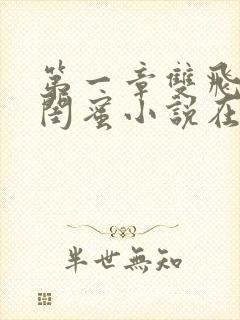 第一章雙飛
閨蜜小說在
半世無知